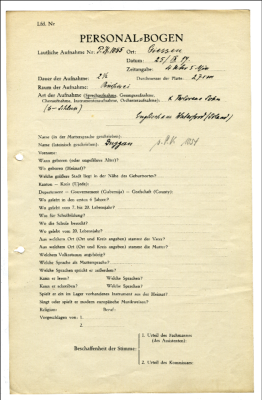 Lfd. Nr.
PERSONAL-BOGEN
Lautliche Aufnahme Nr.: P.K. 1055 Ort: Giessen
Datum: 25/IX 17
Zeitangabe: 4 Uhr 5 Min
Dauer der Aufnahme: 2 ½ Durchmesser der Platte: 27 cm
Raum der Aufnahme:
Art der Aufnahme (Sprechaufnahme, Gesangsaufnahme,
Choraufnahme, Instrumentenaufnahme, Orchesteraufnahme):
Englischen Waterford (Irland)
Name (in der Muttersprache geschrieben):
Name (lateinisch geschrieben): Duggan
Vorname:
Wann geboren (oder ungefähres Alter)?
Wo geboren (Heimat)?
Welche größere Stadt liegt in der Nähe des Geburtsortes?
Kanton — Kreis (Ujedz):
Departement — Gouvernement (Gubernija) — Grafschaft (County):
Wo gelebt in den ersten 6 Jahren?
Wo gelebt vom 7. bis 20. Lebensjahr?
Was für Schulbildung?
Wo die Schule besucht?
Wo gelebt vom 20. Lebensjahr?
Aus welchem Ort (Ort und Kreis angeben) stammt der Vater?
Aus welchem Ort (Ort und Kreis angeben) stammt die Mutter?
Welchem Volksstamm angehörig?
Welche Sprache als Muttersprache?
Welche Sprachen spricht er außerdem?
Kann er lesen? Welche Sprachen?
Kann er schreiben? Welche Sprachen?
Spielt er ein im Lager vorhandenes Instrument aus der Heimat?
Singt oder spielt er modern europäische Musikweisen?
Religion: Beruf:
Vorgeschlagen von: 1.
2.
Beschaffenheit der Stimme:
1. Urteil des Fachmannes
(des Assistenten):
2. Urteil des Kommissars: